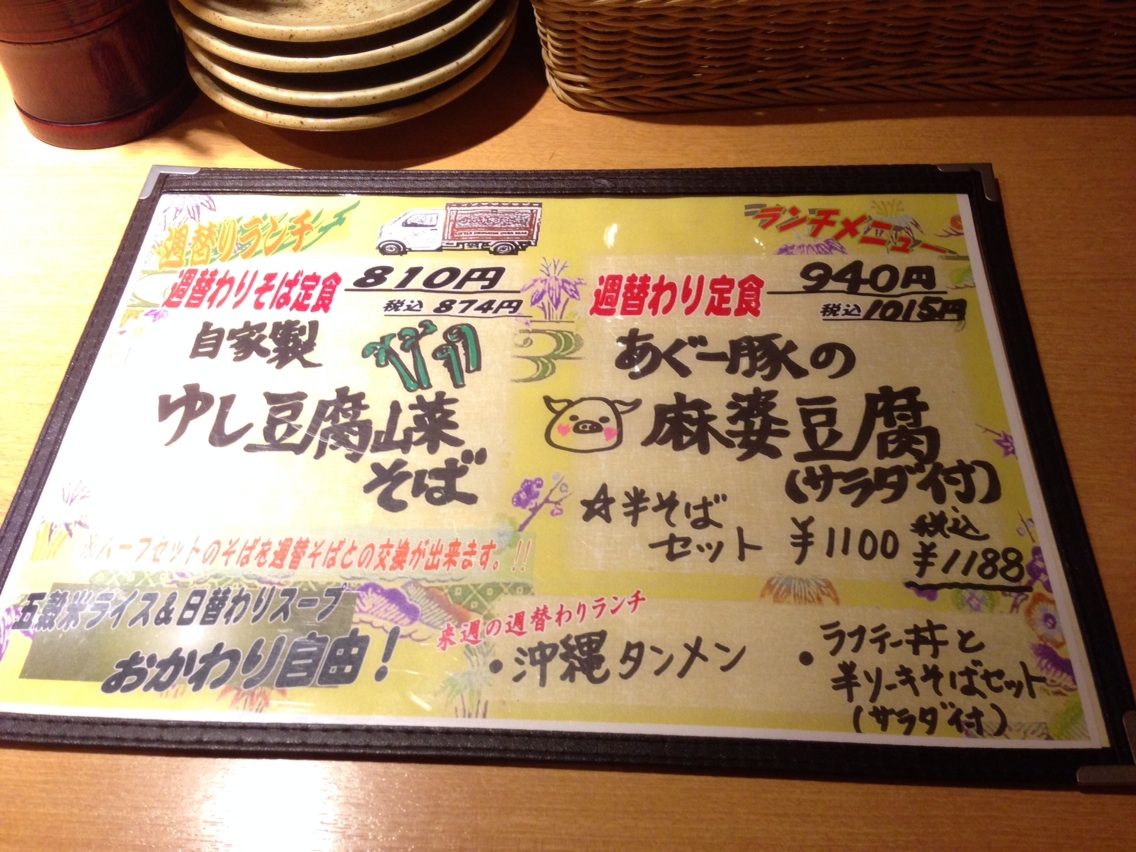 週替りランチ
ランチメニュー
週替わりそば定食 810円
税込 874円
自家製
ゆし豆腐山菜
そば
※ハーフセットのそばを週替そばとの交換が出来ます。!!
週替わり定食 940円
税込 1015円
あぐー豚の
麻婆豆腐
(サラダ付)
☆半そば
セット ¥1100 税込
¥1188
五穀米ライス&日替わりスープ
おかわり自由！
来週の週替わりランチ
・沖縄タンメン
・ラフテー丼と
半ソーキそばセット
(サラダ付)